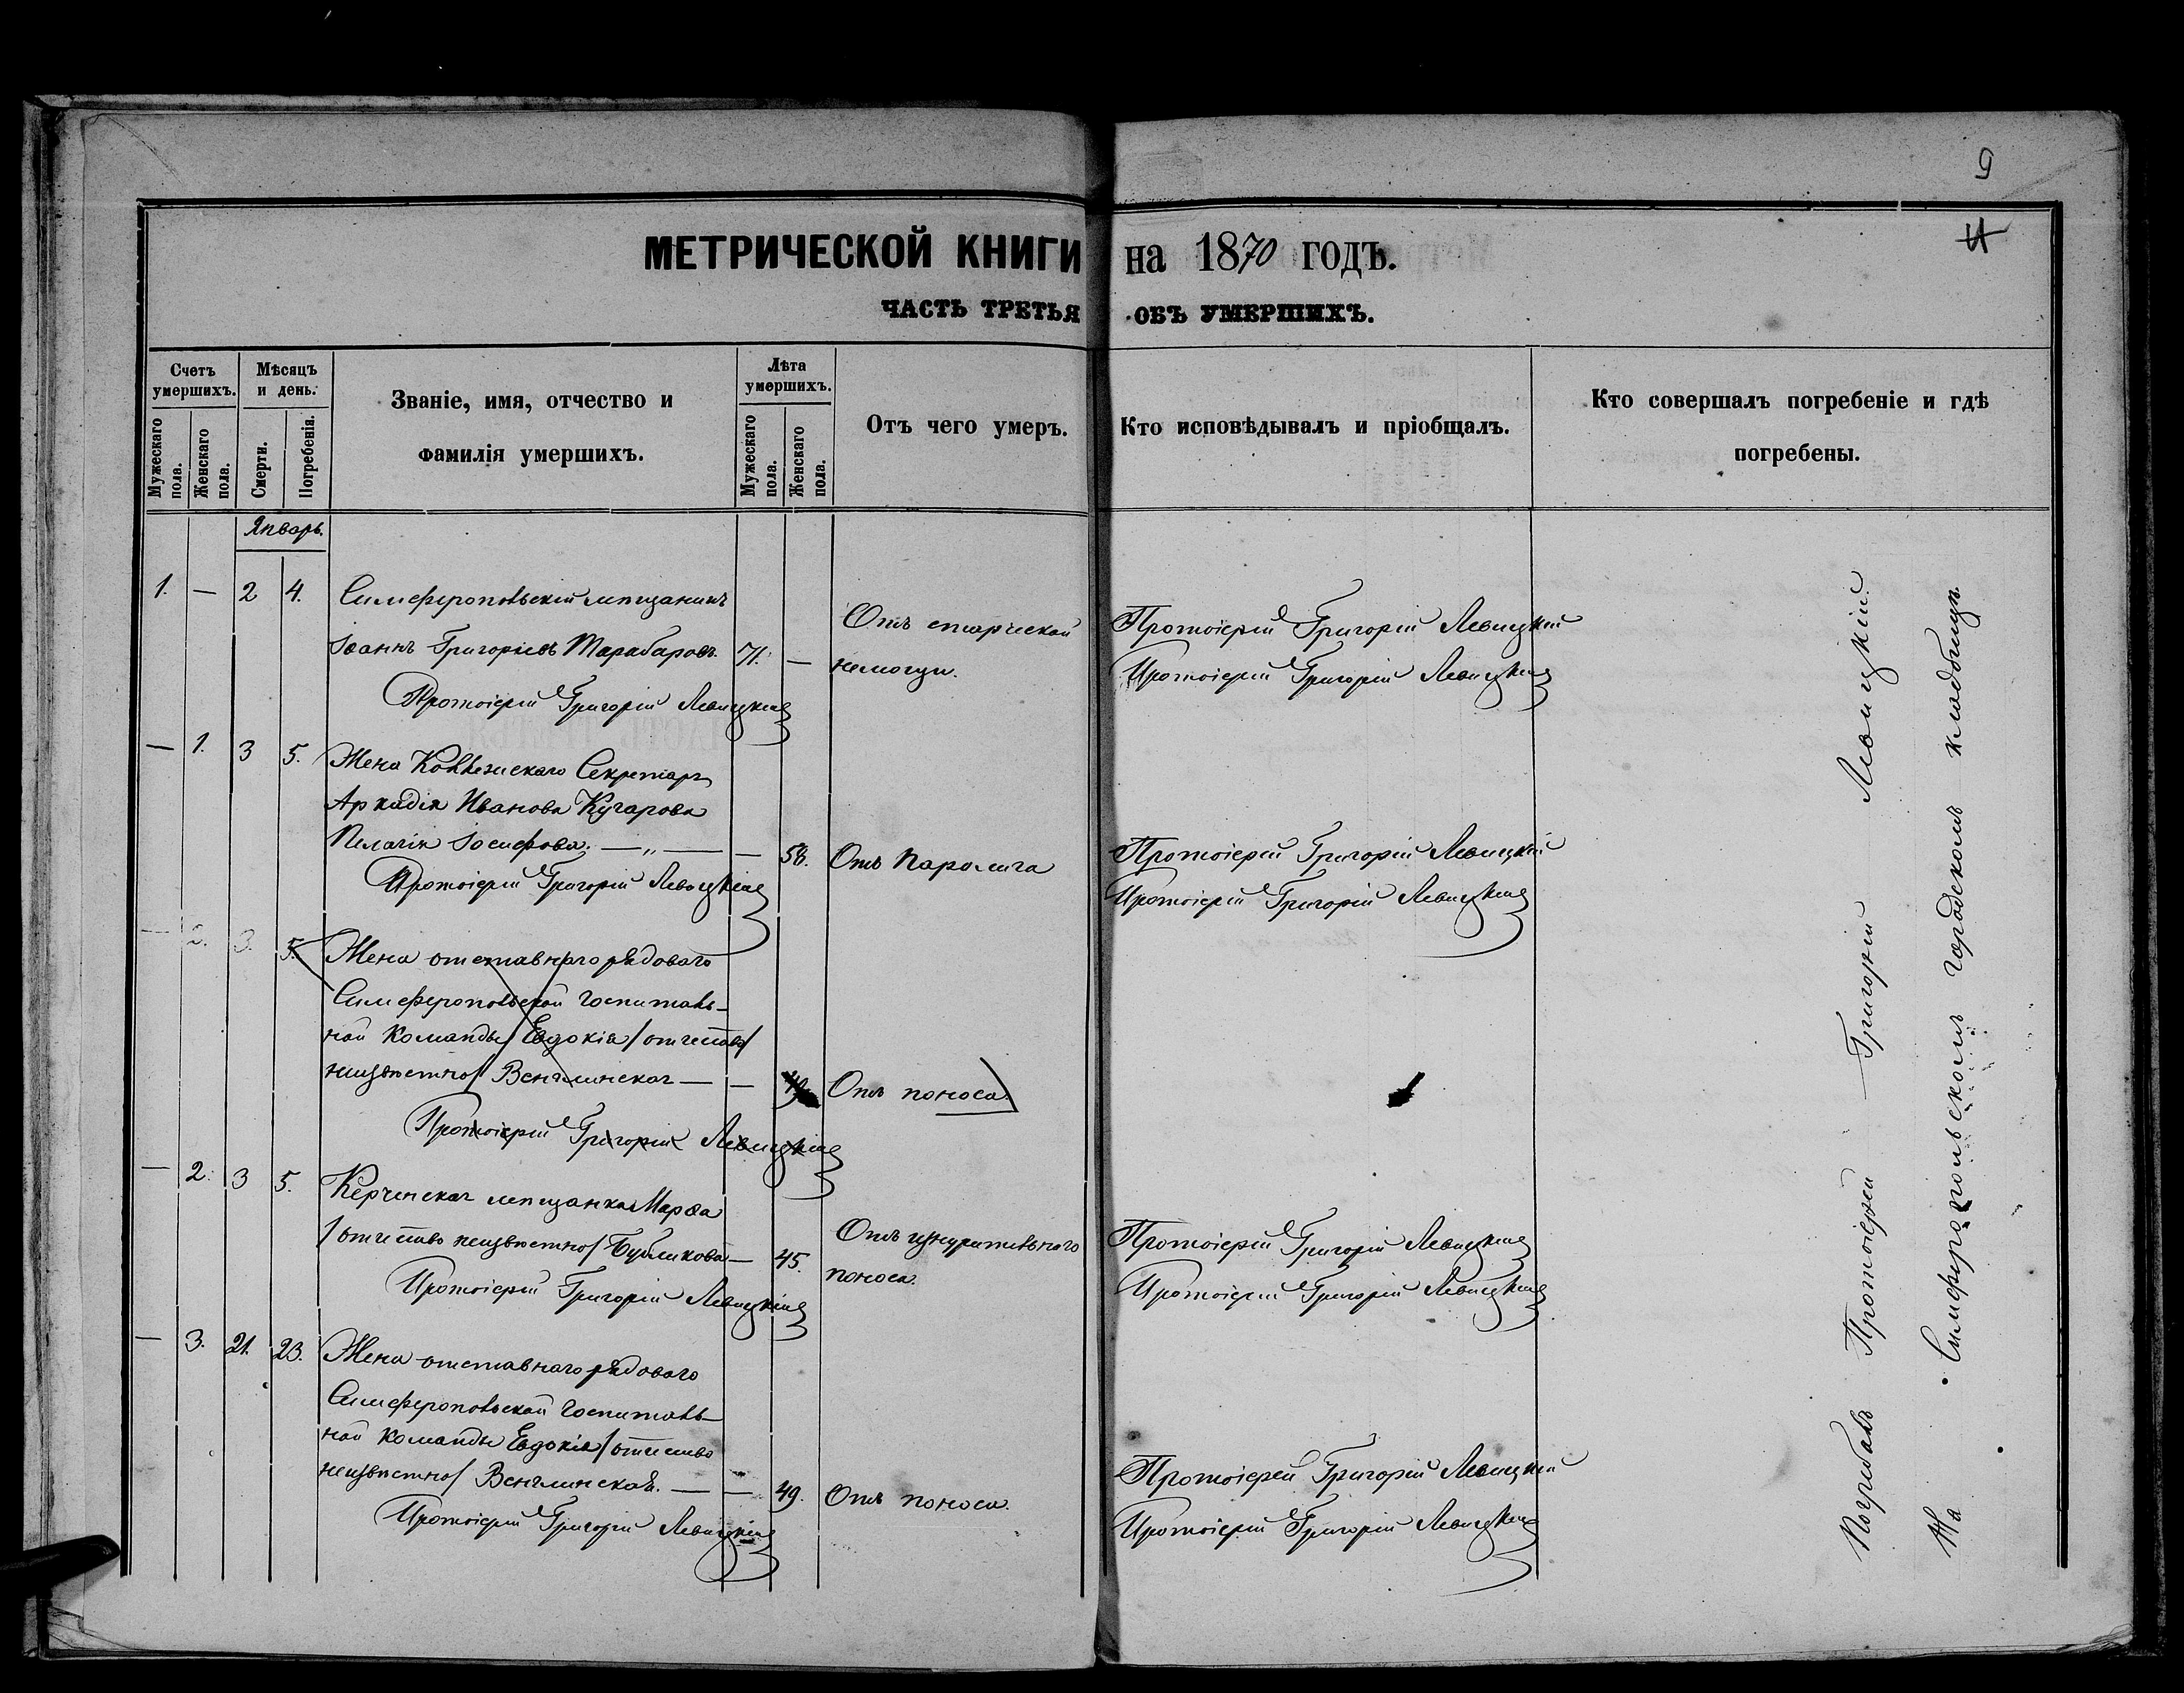 9
4
МЕТРИЧЕСКОЙ КНИГИ на 1870 годъ.
ЧАСТЬ ТРЕТЬЯ ОБЪ УМЕРШИХЪ.
Счетъ умершихъ.
Мужескаго пола.
Женскаго пола.
Мѣсяцъ и день.
Смерти.
Погребенія.
Званіе, имя, отчество и
фамилія умершихъ.
Лѣта умершихъ.
Мужескаго пола.
Женскаго пола.
Отъ чего умеръ.
Кто исповѣдывалъ и пріобщалъ.
Кто совершалъ погребеніе и гдѣ
погребены.
Январь.
1. — 2 4. Симферопольскій мѣщанинъ
Іоаннъ Григоріевъ Тарабаровъ. 71. —
Отъ старческой
немощи.
Протоіерей Григорій Левицкій
Протоіерей Григорій Левицкій
Протоіерей Григорій Левицкій
— 1. 3 5. Жена Коллежскаго Секретаря
Аркадія Иванова Кугарова
Пелагія Іосифова. — „ — — 58. Отъ Паролича
Протоіерей Григорій Левицкій
Протоіерей Григорій Левицкій
Протоіерей Григорій Левицкій
— 2. 3. 5. Жена отставнаго рядоваго
Симферопольской госпиталь-
ной команды Евдокія /отчество
неизвѣстно/ Венглинская — — Отъ поноса.
Протоіерей Григорій Левицкій
— 2. 3 5. Керченская мѣщанка Марѳа
/отчество неизвѣстно/ Бубликова — 45.
Отъ изнурительнаго
поноса.
Протоіерей Григорій Левицкій
Протоіерей Григорій Левицкій
Протоіерей Григорій Левицкій
— 3. 21. 23. Жена отставнаго рядоваго
Симферопольской госпиталь-
ной команды Евдокія /отчество
неизвѣстно/ Венглинская. — — 49. Отъ поноса.
Протоіерей Григорій Левицкій
Протоіерей Григорій Левицкій
Протоіерей Григорій Левицкій
Погребалъ Протоіерей Григорій Левицкій.
На Симферопольскомъ городскомъ кладбищѣ